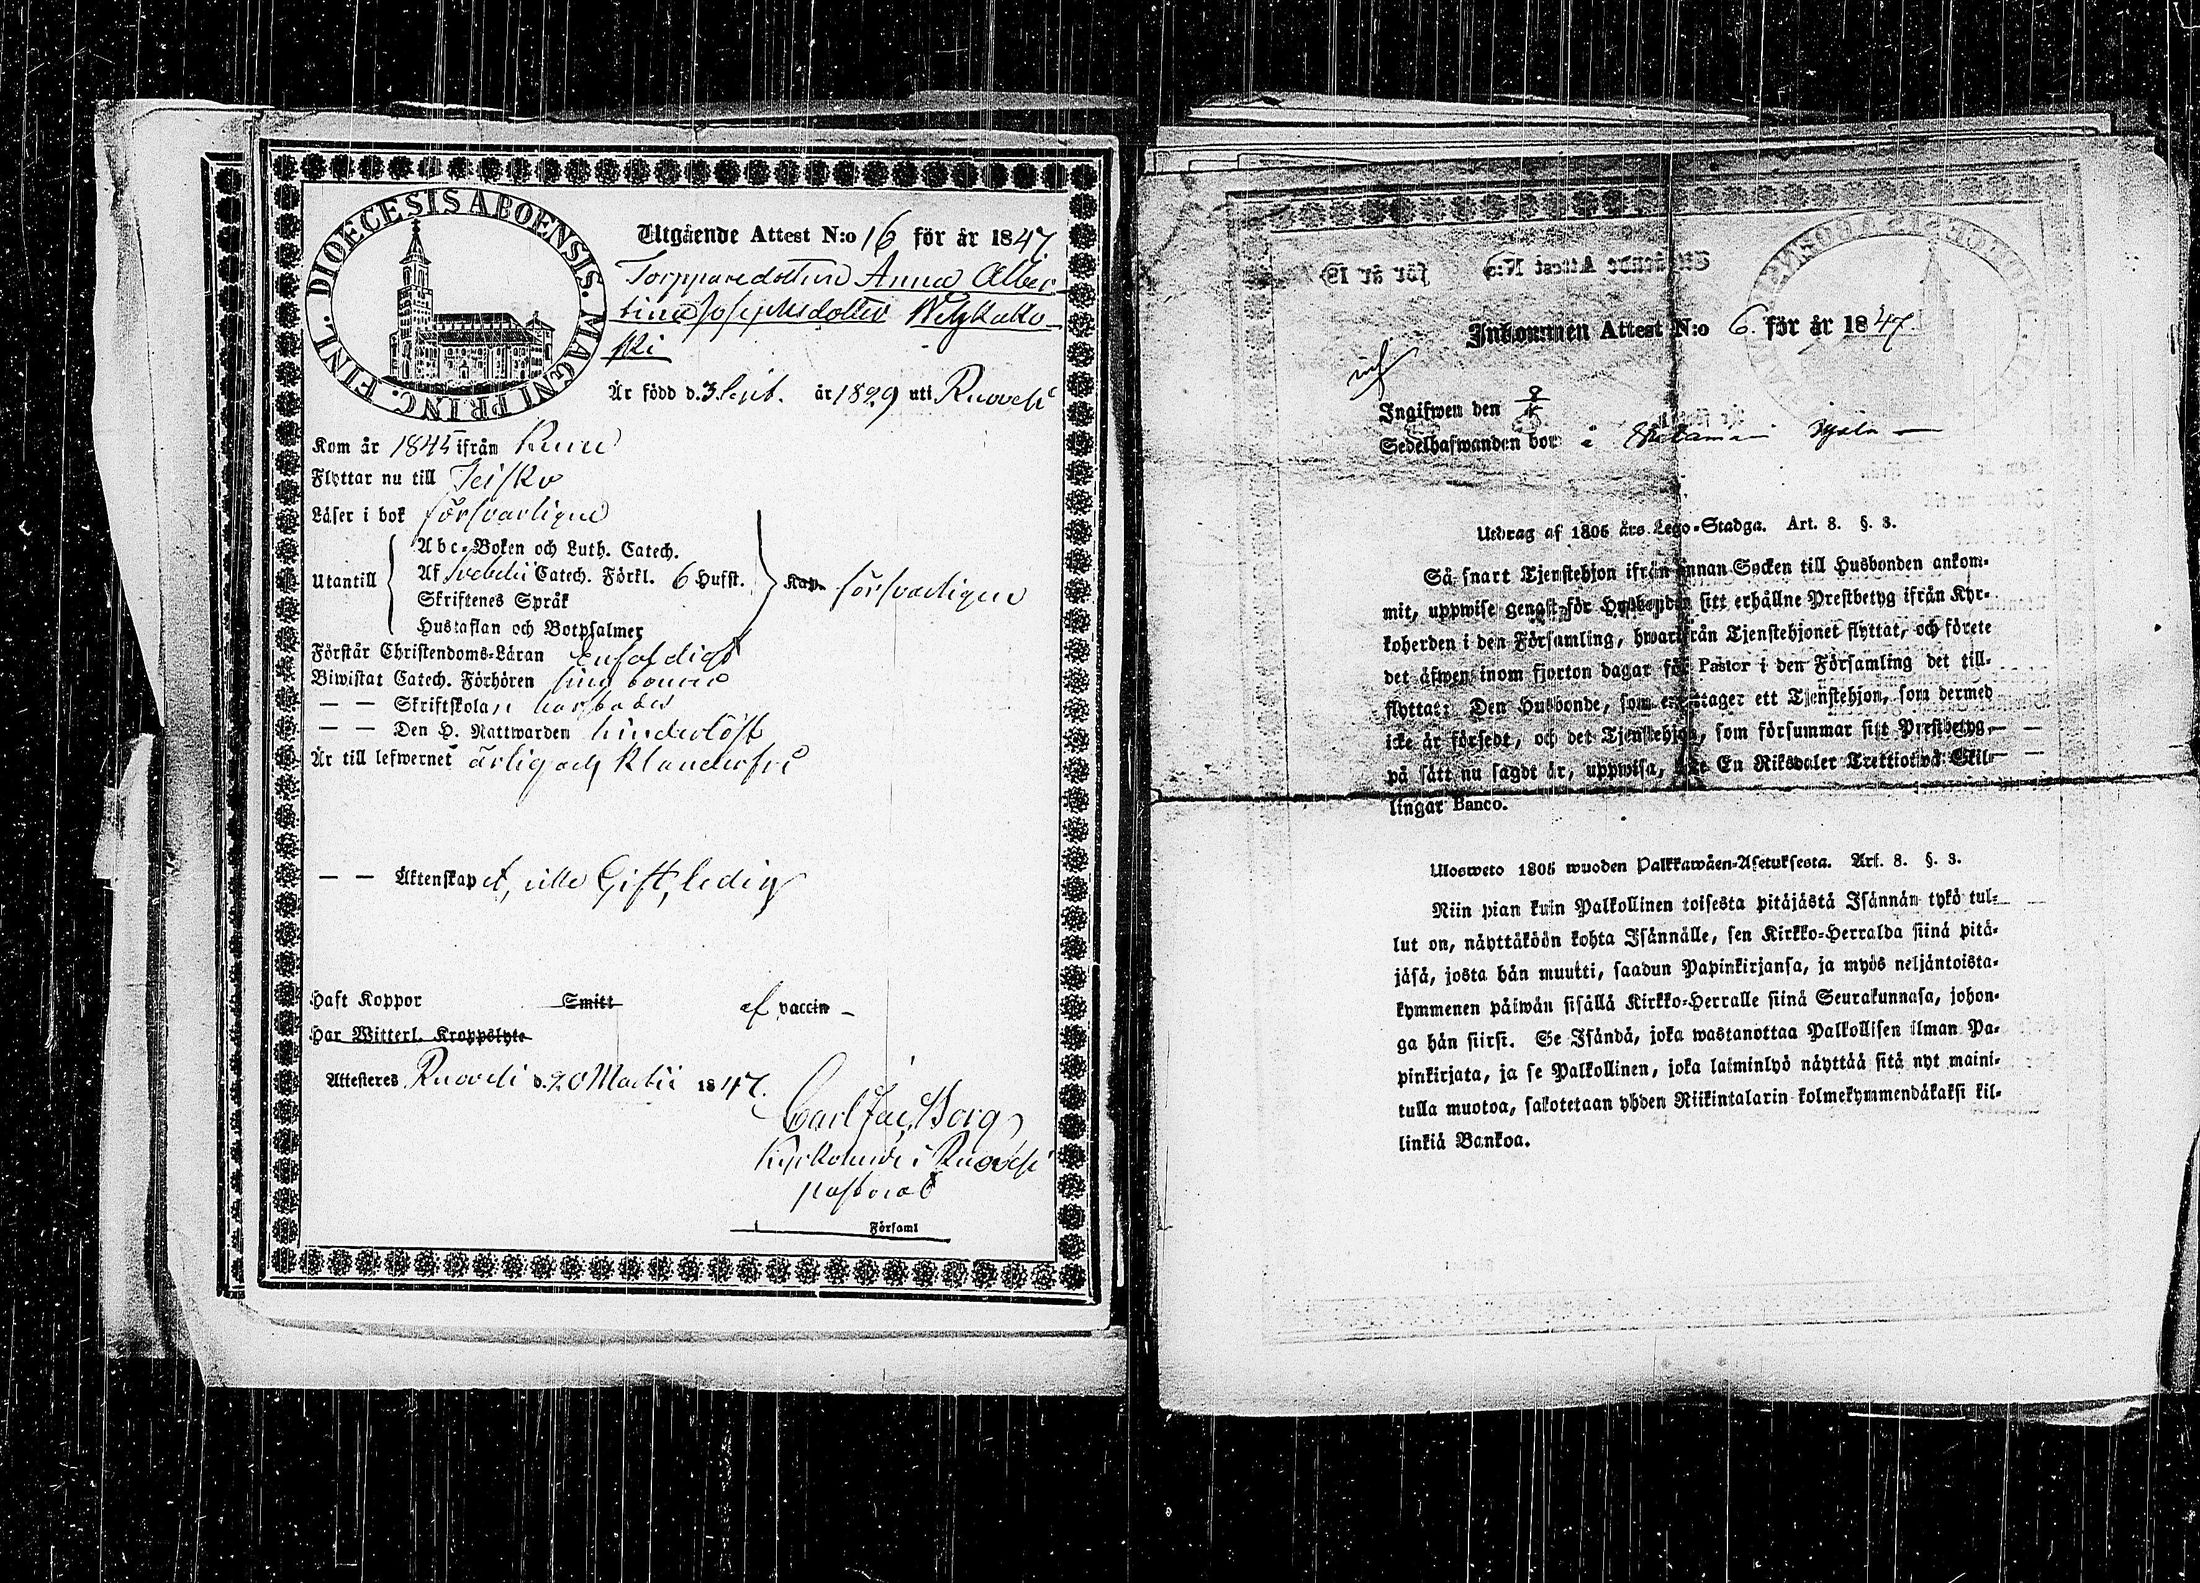 DIOECESIS ABOENSIS. MAGNI PRINC. FINL.
Utgående Attest N:o 16 för år 1847
Torpparedottren Anna Alber-
tina Josephsdotter
ski
Är född d. 3 Sept. år 1829 uti Ruovesi
Kom år 1845 ifrån
Flyttar nu till Teisko
Läser i bok försvarligen
Abc-Boken och Luth. Catech.
Utantill Af Svebelii Catech. Förkl. 6 Hufst. Kap. försvarligen
Skriftenes Språk
Hustaflan och Botpsalmer
Förstår Christendoms-Läran enfaldigt
Biwistat Catech. Förhören
— — Skriftskolan
— — Den H. Nattwarden hinderlöst
Är till lefwernet ärlig och klanderfri
— — Äktenskapet, ej Gift, ledig
Haft Koppor Smitt af vaccin —
Har Witterl. Kroppslyte
Attesteras Ruovesi d. 20 Martii 1847.
Carl Jac. Borg
Kyrkoherde i Ruovesi
pastorat
Församl
Inkommen Attest N:o 6. för år 1847.
Ingifwen den
Sedelhafwanden bor i
Utdrag af 1805 års Lego-Stadga. Art. 8. §. 3.
Så snart Tjenstehjon ifrån annan Socken till Husbonden ankom-
mit, uppwise genast för Husbonden sitt erhållne Prestbetyg ifrån Kyr-
koherden i den Församling, hwarifrån Tjenstehjonet flyttat, och förete
det äfwen inom fjorton dagar för Pastor i den Församling det till-
flyttat: Den Husbonde, som emottager ett Tjenstehjon, som dermed
icke är försedt, och det Tjenstehjon, som försummar sitt Prestbetyg,
på sätt nu sagdt är, uppwisa, böte En Riksdaler Trettiotwå Skil-
lingar Banco.
Ulosweto 1805 wuoden Palkkawäen-Asetuksesta. Art. 8. §. 3.
Niin pian kuin Palkollinen toisesta pitäjästä Isännän tykö tul-
lut on, näyttäköön kohta Isännälle, sen Kirkko-Herralda siinä pitä-
jäsä, josta hän muutti, saadun Papinkirjansa, ja myös neljäntoista-
kymmenen päiwän sisällä Kirkko-Herralle siinä Seurakunnasa, johon-
ga hän siirsi. Se Isändä, joka wastanottaa Palkollisen ilman Pa-
pinkirjata, ja se Palkollinen, joka laiminlyö näyttää sitä nyt maini-
tulla muotoa, sakotetaan yhden Riikintalarin kolmekymmendäkaksi kil-
linkiä Bankoa.